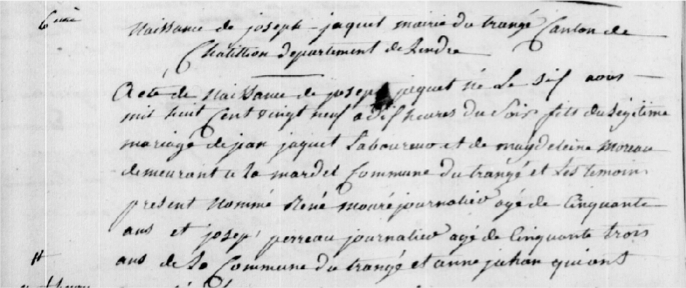 6eme
Naissance de joseph jaquet mairie du trangé Canton de
Chatillion departement de Lindre
Acte de Naissance de joseph jaquet né Le six aous
mil huit Cent vingt neuf a dix heures du Soir fils du Legitime
mariage de jean jaquet Laboureur et de magdeleine moreau
demeurant a la mardel Commune du trangé et Les temoin
present Nommé René mouré journalier agé de Cinquante
ans et joseph perreau journalier agé de Cinquante trois
ans de La Commune du trangé et anne juhan qui ont